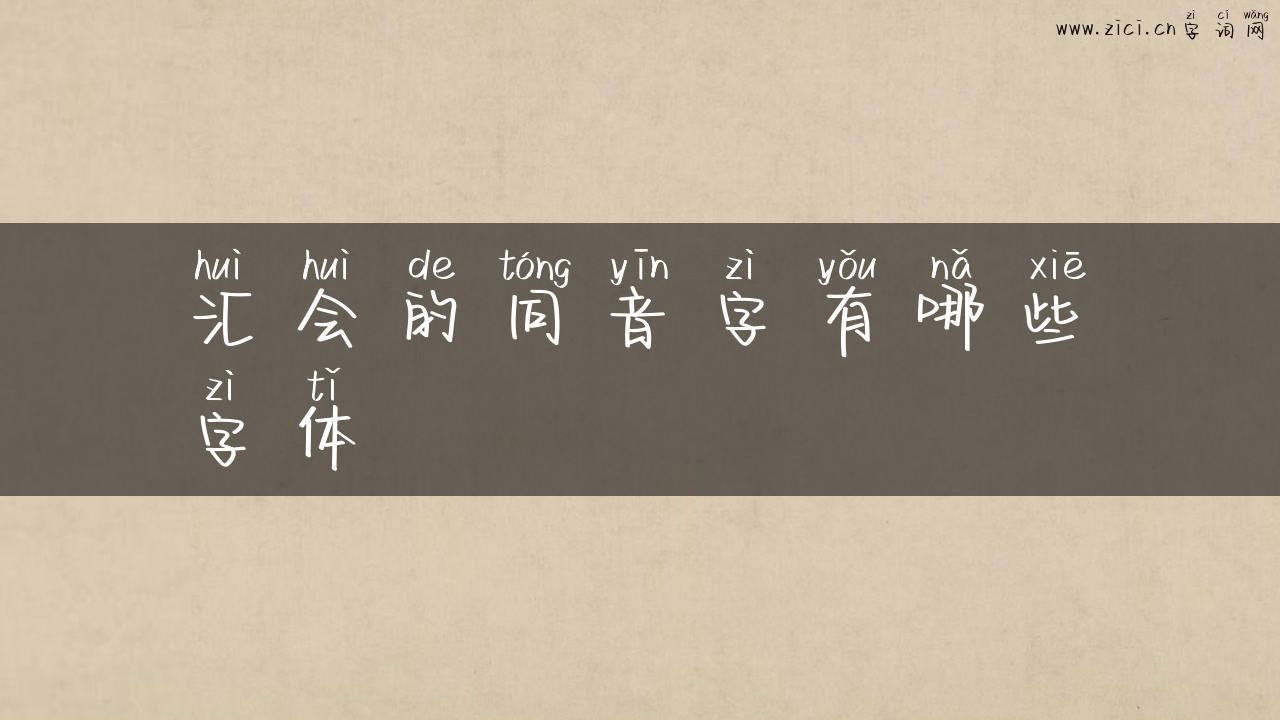 zì cí wǎng
www.zici.cn 字词网
huì huì de tóng yīn zì yǒu nǎ xiē
汇会的同音字有哪些
zì tǐ
字体